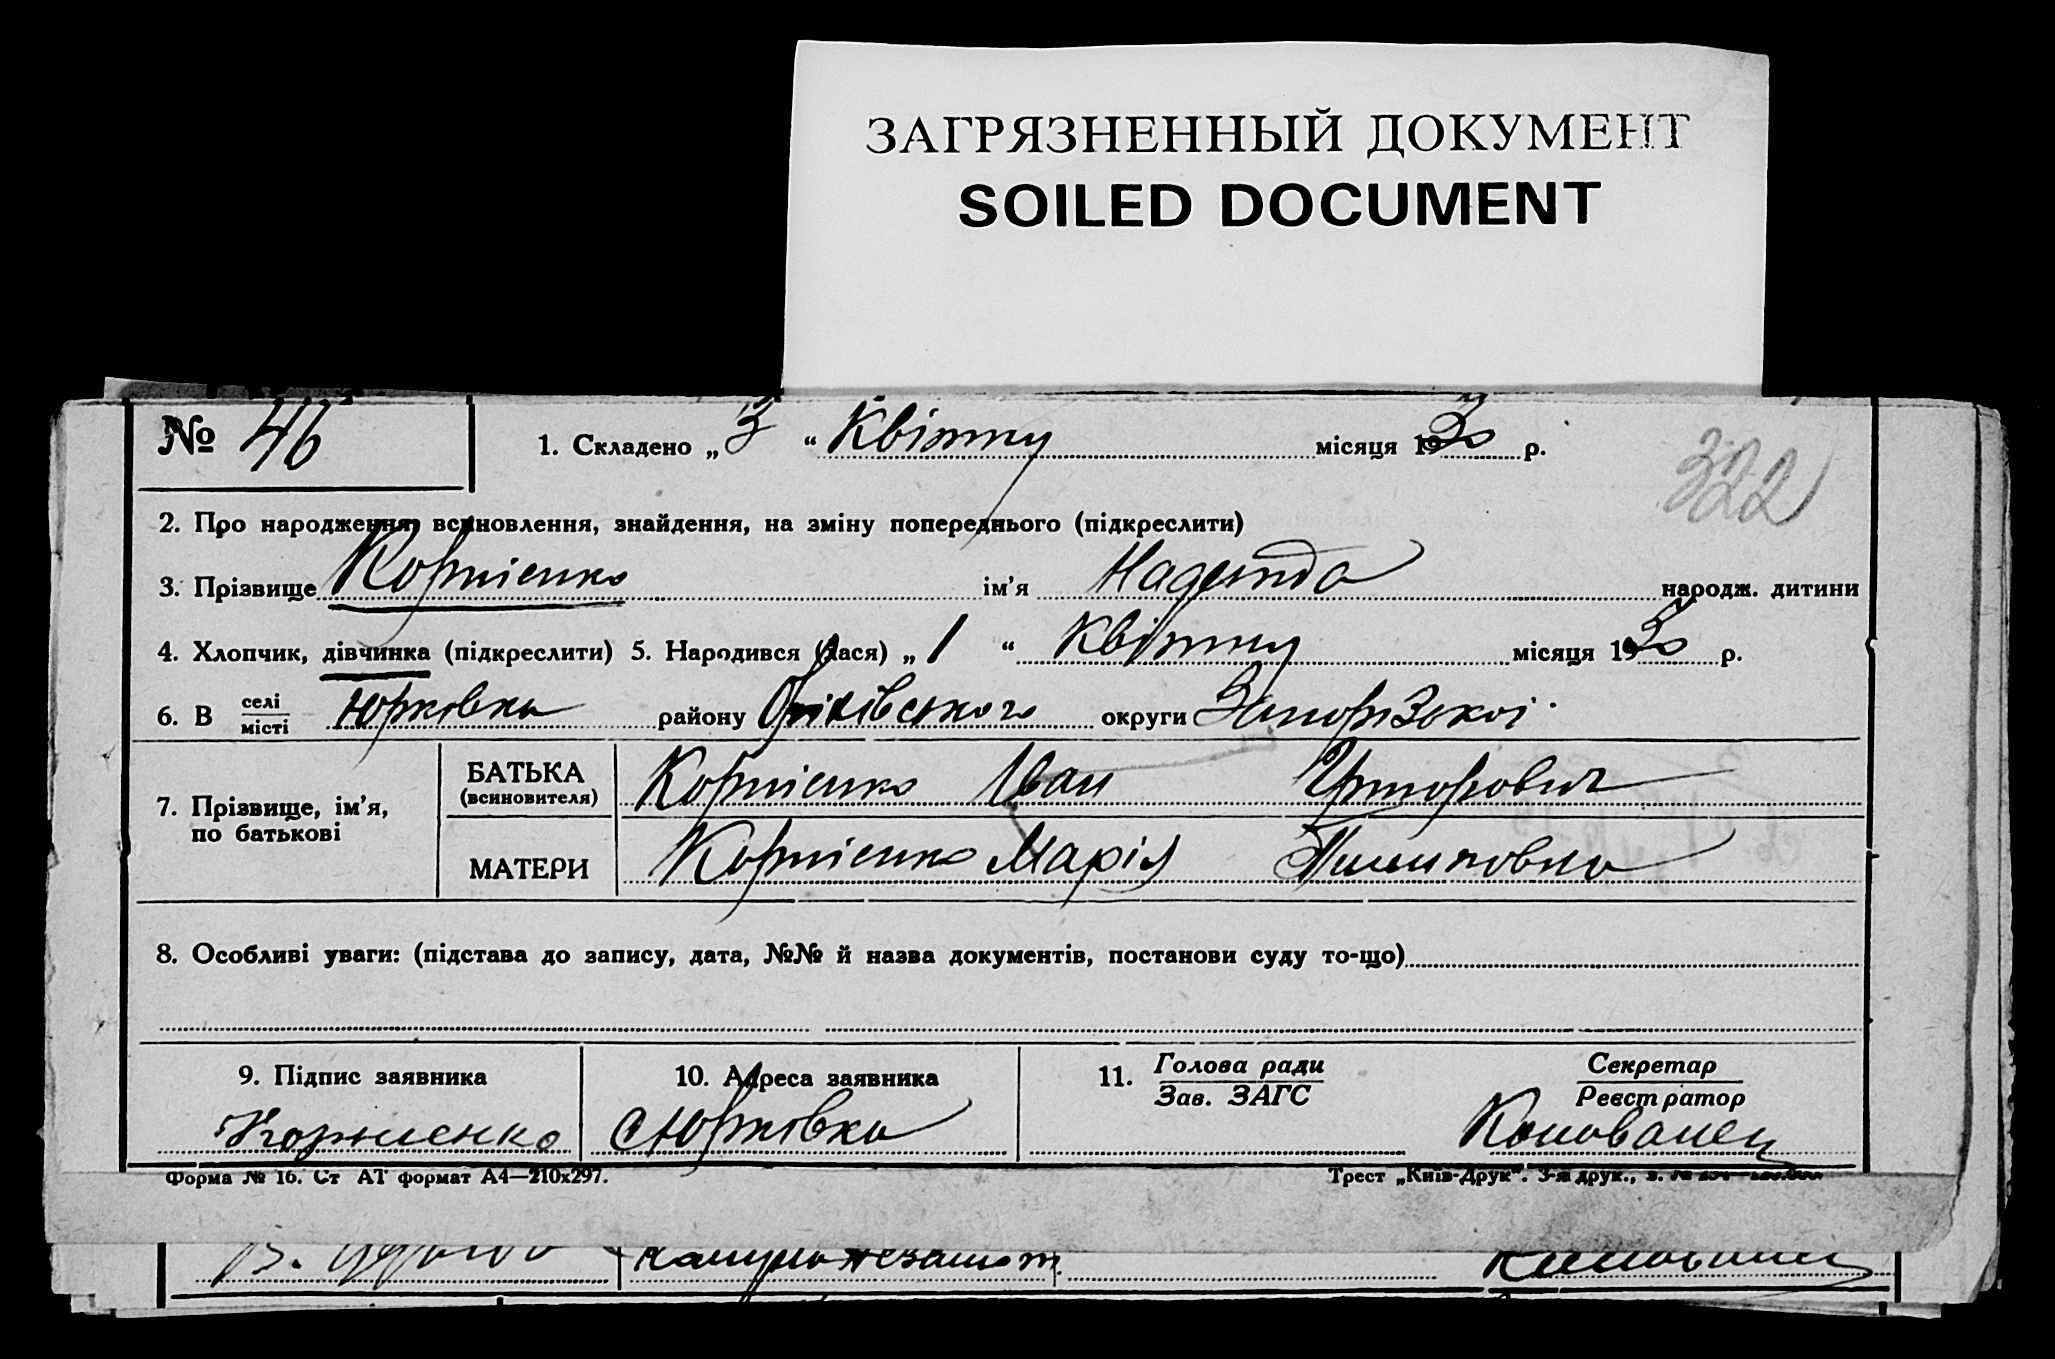 ЗАГРЯЗНЕННЫЙ ДОКУМЕНТ
SOILED DOCUMENT
№ 46 1. Складено „ 3 “ Квітну місяця 1930 р.
322
2. Про народження, всиновлення, знайдення, на зміну попереднього (підкреслити)
3. Прізвище Корнієнко ім’я Надежда народж. дитини
4. Хлопчик, дівчинка (підкреслити) 5. Народився (лася) „ 1 “ Квітну місяця 1930 р.
6. В селі/місті Юрковка району Оріхівського округи Запорізької
7. Прізвище, ім’я, по батькові
БАТЬКА (всиновителя) Корнієнко Іван
МАТЕРИ Корнієнко Марія Пилиповна
8. Особливі уваги: (підстава до запису, дата, №№ й назва документів, постанови суду то-що)
9. Підпис заявника 10. Адреса заявника 11. Голова ради/Зав. ЗАГС Секретар/Реєстратор
Корниенко с Юрковка Коновалец
Форма № 16. Ст АТ формат А4—210х297. Трест „Київ-Друк“. 3-я друк., з. №